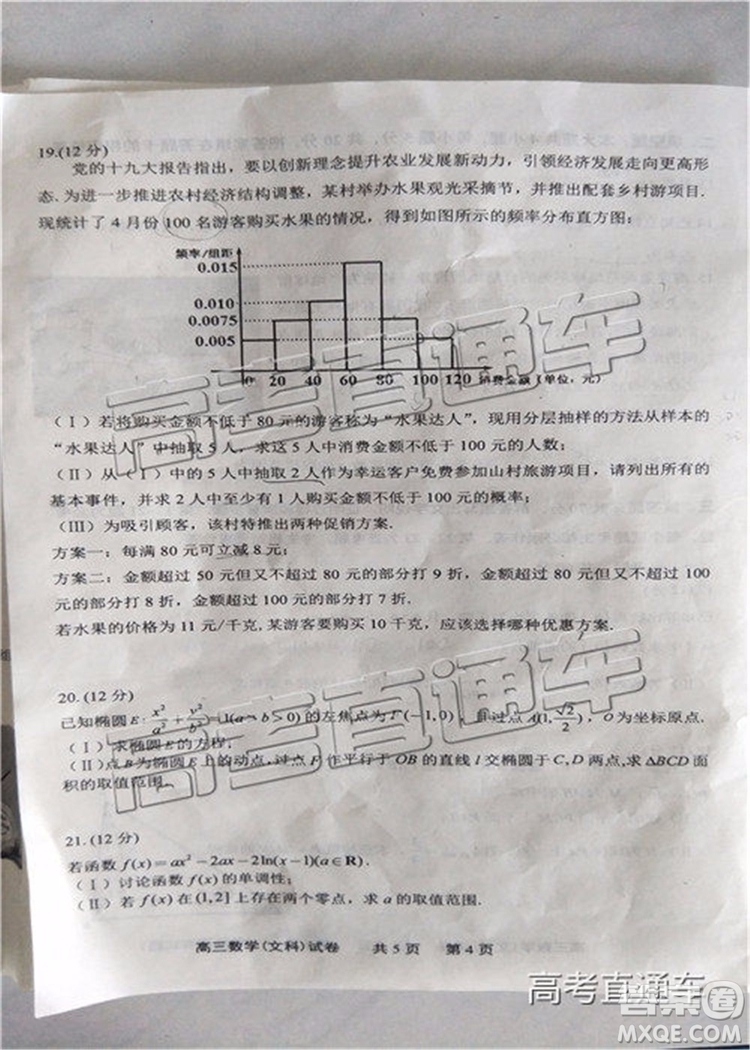 19.(12 分)
党的十九大报告指出，要以创新理念提升农业发展新动力，引领经济发展走向更高形
态.为进一步推进农村经济结构调整，某村举办水果观光采摘节，并推出配套乡村游项目.
现统计了 4 月份 100 名游客购买水果的情况，得到如图所示的频率分布直方图：
频率/组距
0.015
0.010
0.0075
0.005
0 20 40 60 80 100 120 消费金额（单位：元）
（Ⅰ）若将购买金额不低于 80 元的游客称为“水果达人”，现用分层抽样的方法从样本的
“水果达人”中抽取 5 人，求这 5 人中消费金额不低于 100 元的人数；
（Ⅱ）从（Ⅰ）中的 5 人中抽取 2 人作为幸运客户免费参加山村旅游项目，请列出所有的
基本事件，并求 2 人中至少有 1 人购买金额不低于 100 元的概率；
（Ⅲ）为吸引顾客，该村特推出两种促销方案.
方案一：每满 80 元可立减 8 元；
方案二：金额超过 50 元但又不超过 80 元的部分打 9 折，金额超过 80 元但又不超过 100
元的部分打 8 折，金额超过 100 元的部分打 7 折.
若水果的价格为 11 元/千克,某游客要购买 10 千克，应该选择哪种优惠方案.
20.(12 分)
已知椭圆 E: x²/a² + y²/b² = 1(a > b > 0) 的左焦点为 F(−1,0)，且过点 A(1, √2/2)，O 为坐标原点.
（Ⅰ）求椭圆 E 的方程.
（Ⅱ）点 B 为椭圆 E 上的动点，过点 F 作平行于 OB 的直线 l 交椭圆于 C, D 两点,求 ΔBCD 面
积的取值范围.
21.(12 分)
若函数 f(x)=ax²−2ax−2ln(x−1)(a∈R).
（Ⅰ）讨论函数 f(x) 的单调性；
（Ⅱ）若 f(x) 在 (1,2] 上存在两个零点，求 a 的取值范围.
高三数学(文科)试卷 共 5 页 第 4 页
高考直通车
高考直通车
高考直通车
答案圈
MXQE.COM